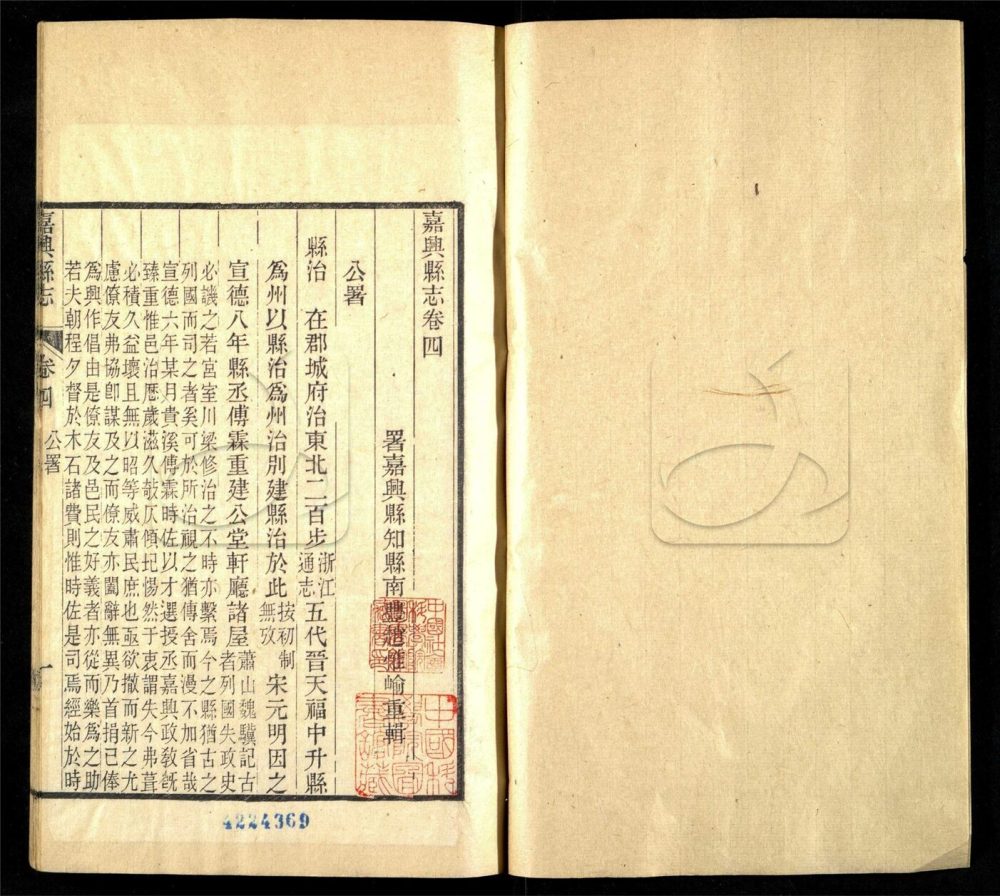 嘉興縣志卷四
署嘉興縣知縣南豐趙惟崳重輯
公署
縣治　在郡城府治東北二百步浙江通志五代晉天福中升縣
爲州以縣治爲州治別建縣治於此按初制無攷宋元明因之
宣德八年縣丞傅霖重建公堂軒廳諸屋蕭山魏驥記古者列國失政史
必譏之若宮室川梁修治之不時亦繫焉今之縣猶古之
列國而司之者奚可於所治視之猶傳舍而漫不加省哉
宣德六年某月貴溪傅霖時佐以才選授丞嘉興政敎旣
臻重惟邑治歷歲滋久敧仄傾圮惕然于衷謂失今弗葺
必積久益壞且無以昭等威肅民庶也亟欲撤而新之尤
慮僚友弗協卽謀及之而僚友亦闔辭無異乃首捐己俸
爲興作倡由是僚友及邑民之好義者亦從而樂爲之助
若夫朝程夕督於木石諸費則惟時佐是司焉經始於時
嘉興縣志
卷四
公署
一
4224369